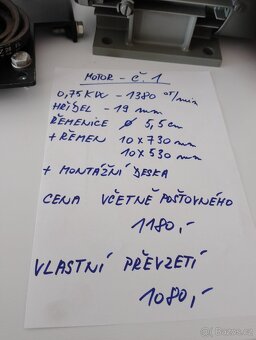 MOTOR - č. 1
0,75 KW - 1380 ot/min
HŘÍDEL - 19 mm
ŘEMENICE ø 5,5 cm
+ ŘEMEN 10 x 730 mm
10 x 530 mm
+ MONTÁŽNÍ DESKA
CENA VČETNĚ POŠTOVNÉHO
1180,-
VLASTNÍ PŘEVZETÍ
1080,-
Bazoš.cz